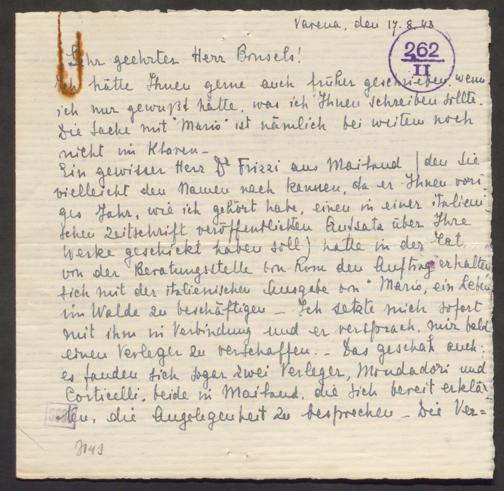 Varena, den 17.8.43
262
II
Sehr geehrter Herr Bonsels!
Ich hätte Ihnen gerne auch früher geschrieben, wenn
ich nur gewußt hätte, was ich Ihnen schreiben sollte.
Die Sache mit "Mario" ist nämlich bei weitem noch
nicht im Klaren –
Ein gewisser Herr Dr Frizzi aus Mailand (den Sie
vielleicht den Namen nach kennen, da er Ihnen vori-
ges Jahr, wie ich gehört habe, einen in einer italieni
schen Zeitschrift veröffentlichten Aufsatz über Ihre
Werke geschickt haben soll) hatte in der Tat
von der Beratungsstelle von Rom den Auftrag erhalten
sich mit der italienischen Ausgabe von "Mario, ein Leben
im Walde zu beschäftigen – Ich setzte mich sofort
mit ihm in Verbindung und er versprach, mir bald
einen Verleger zu verschaffen. – Das geschah auch
es fanden sich sogar zwei Verleger, Mondadori und
Corticelli, beide in Mailand, die sich bereit erklär-
ten, die Angelegenheit zu besprechen – Die Ver=